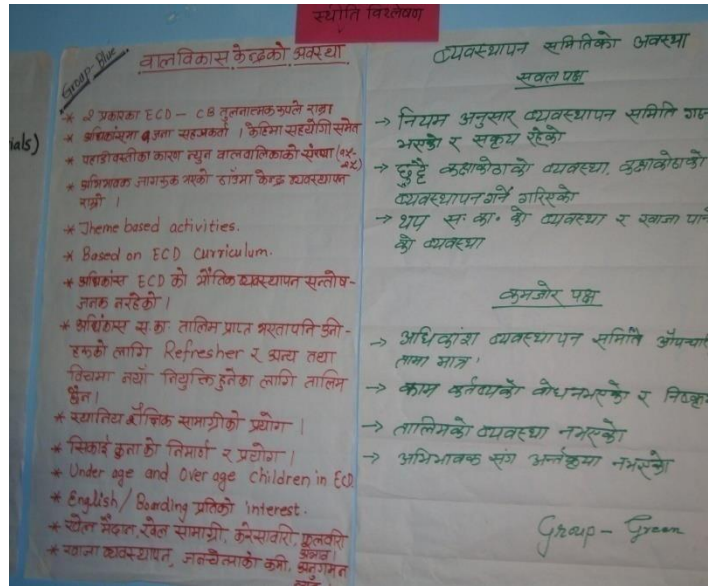 स्थीति विश्लेषण
ials)
Group-Blue
वालविकास केन्द्रको अवस्था
* २ प्रकारका ECD - CB तुलनात्मक रुपले राम्रो
* अधिकांसमा १ जना सहजकर्ता । केहिमा सहयोगी समेत
* पहाडी वस्तीका कारण न्युन वालवालिकाको संख्या
* अभिभावक जागरुक भएको ठाउँमा केन्द्र व्यवस्थापन
राम्रो ।
* Theme based activities.
* Based on ECD Curriculum.
* अधिकांस ECD को भौतिक व्यवस्थापन सन्तोष-
जनक नरहेको ।
* अधिकांस स.का. तालिम प्राप्त भएतापनि उनी-
हरुको लागि Refresher र अन्य तथा
विचमा नयाँ नियुक्ति हुनेका लागि तालिम
छैन ।
* स्थानिय शैक्षिक सामाग्रीको प्रयोग ।
* सिकाई कुना को निमार्ण र प्रयोग ।
* Under age and Over age children in ECD
* English/Boarding प्रतिको interest.
* खेल मैदान, खेल सामाग्री, करेसावारी, फूलवारी
अभाव ।
* खाजा व्यवस्थापन, जनचेतनाको कमी, अनुगमन
व्यवस्थापन समितिको अवस्था
सवल पक्ष
→ नियम अनुसार व्यवस्थापन समिति गठन
भएको र सक्रृय रहेको
→ छुट्टै कक्षाकोठाको व्यवस्था, कक्षाकोठाको
व्यवस्थापन गर्ने गरिएको
→ थप स. का. को व्यवस्था र खाजा पानी
को व्यवस्था
कमजोर पक्ष
→ अधिकांश व्यवस्थापन समिति औपचारि
तामा मात्र ।
→ काम कर्तव्यको वोध नभएको र निष्कृय
→ तालिमको व्यवस्था नभएको
→ अभिभावक संग अर्न्तकृया नभएको
Group - Green